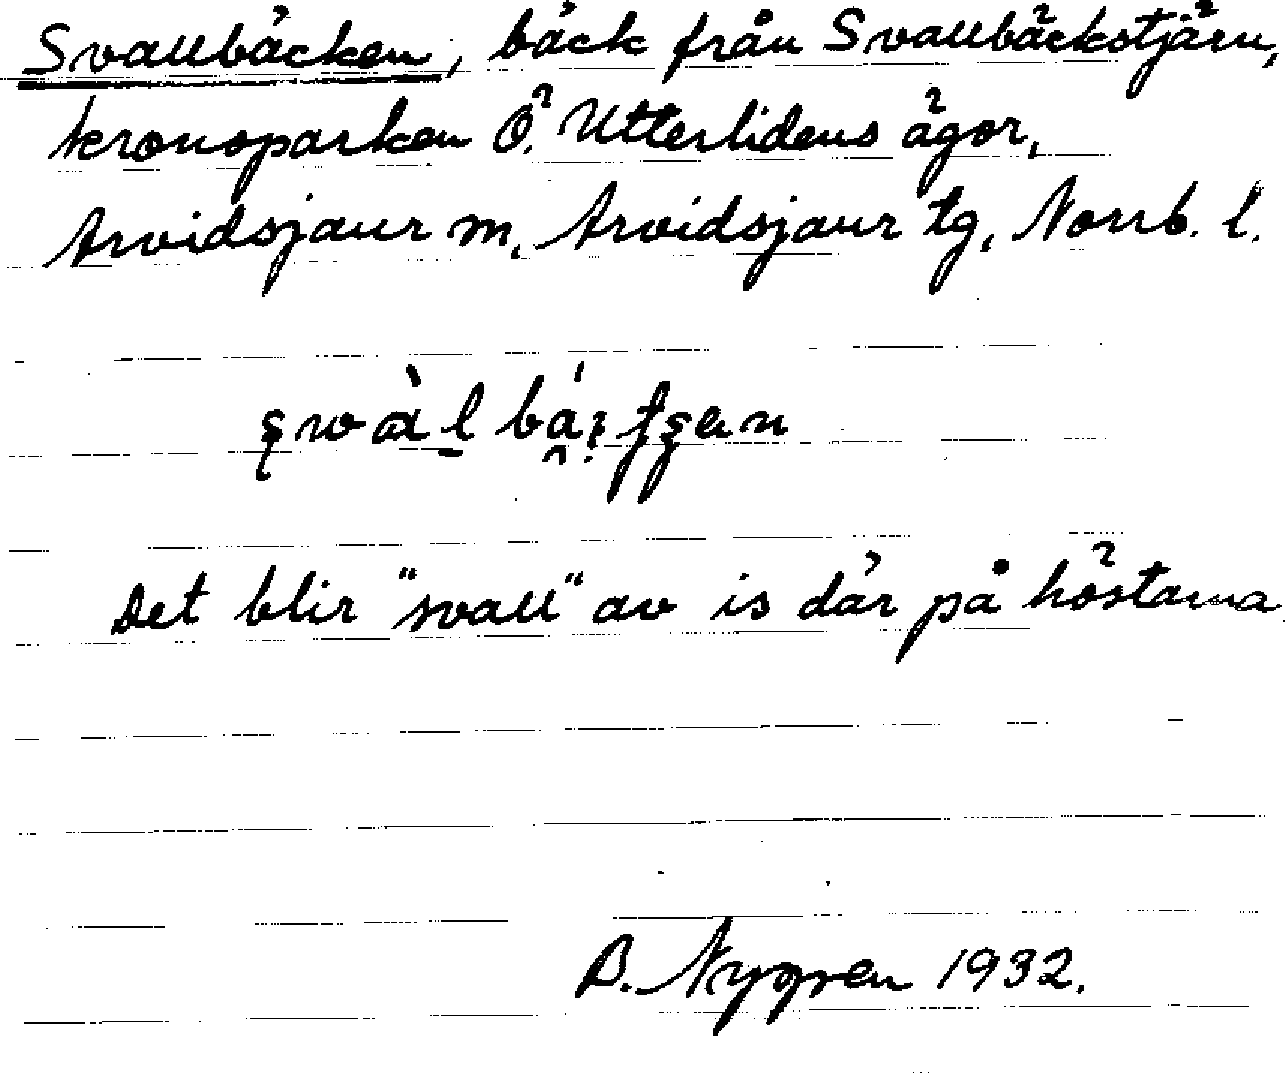 Svallbäcken, bäck från Svallbäckstjärn,
kronoparken Ö. Utterlidens ägor,
Arvidsjaur m, Arvidsjaur tg, Norrb. l.
Det blir "svall" av is där på höstarna
B. Nygren 1932.